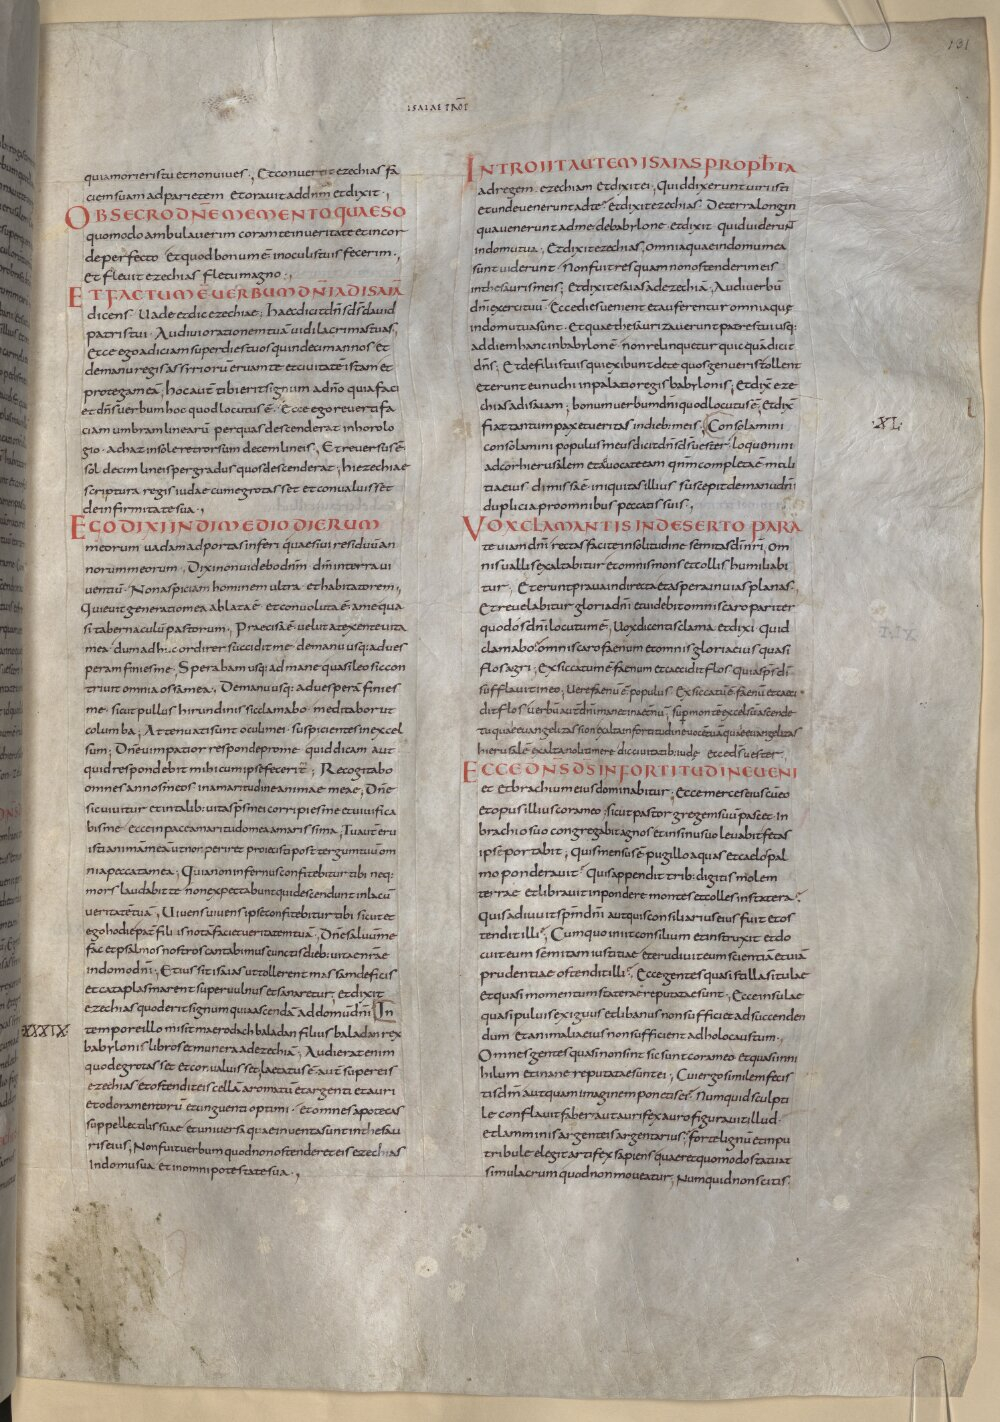 131
ISAIAE PROP
quiamorieris tu et non uiues ., Et conuertit ezechias fa
ciem suam ad parietem et orauit ad dnm et dixit .,
OBSECRO DNE MEMENTO QUAESO
quomodo ambulauerim coram te in ueritate et in cor
de perfecto et quod bonum ē in oculis tuis fecerim .,
et fleuit ezechias fletu magno .,
ET FACTUM Ē UERBUM DNI AD ISAIĀ
dicens Uade et dic ezechiae ; haec dicit dns ds dauid
patris tui . Audiui orationem tuā uidi lacrimas tuas,
et ecce ego adiciam super dies tuos quindecim annos et
de manu regis assiriorū eruam te et ciuitatē istam et
protegam eā ; hoc autē tibi erit signum a dno quia faci
et dns uerbum hoc quod locutus ē . Ecce ego reuerti fa
ciam umbram linearū per quas descenderat in horolo
gio achat in sole retrorsum decem lineis , Et reuersus ē
sol decim lineis per gradus quos descenderat ; hiezechiae
scriptura regis iudae cum egrotasset et conualuisset
de infirmitate sua .,
EGO DIXI IN DIMEDIO DIERUM
meorum uadam ad portas inferi quaesiui residuū an
norum meorum . Dixi non uidebo dnm dnm in terra ui
uentiū . Non aspiciam hominem ultra et habitatorem,
Quieuit generatio mea ablata ē et conuoluta ē a me qua
si tabernaculū pastorum , Praecisa ē uelut a texente uita
mea dum adhc ordirer succidit me de manu usq; ad ues
peram finies me . Sperabam usq; ad mane quasi leo sic con
triuit omnia ossa mea . De mane usq; ad uesperā finies
me sicut pullus hirundinis sic clamabo meditabor ut
columba ; Attenuati sunt oculi mei suspicientes in excel
sum ; Dne uim patior responde pro me quid dicam aut
quid respondebit mihi cum ipse fecerit ; Recogitabo
omnes annos meos in amaritudine animae meae ; Dne
si c uiuitur et in talib; uita sps mei corripies me et uiuifica
bis me ecce in pacc amaritudo mea amarissima ; Tu autē eru
isti animā meā ut non periret proiecisti post tergum tuū om
nia peccata mea ; Quia non infernus confitebitur tibi neq;
mors laudabit te non expectabunt qui descendunt in lacū
ueritatē tuā , Uiuens uiuens ipse confitebitur tibi sicut et
ego hodie pater filiis notā faciet ueritatem tuā . Dne saluū me
fac et psalmos nostros cantabimus cunctis dieb; uitae nrae
in domo dni , Et iussit isaias ut tollerent massam de ficis
et cataplasmarent super uulnus et sanaretur ; et dixit
ezechias quod erit signum quia ascendā ad domū dni In
XXXIX
tempore illo misit maerodach baladan filius baladan rex
babylonis libros et munera ad ezechiā ; Audierat enim
quod egrotasset et conualuisset ; laetatus ē autē super eis
ezechias et ostendit eis cellā aromatū et argenti et auri
et odoramentorū et unguenti optimi . et omnes apotecas
suppellectilis suae et uniuersa quae inuenta sunt in thesau
ris eius ; Non fuit uerbum quod non ostenderet eis ezechias
In domo sua et in omni potestate sua .,
INTROIIT AUTEM ISAIAS PROPHTA
ad regem ezechian et dixit ei ; Quid dixerunt uiri isti
et unde uenerunt ad te . Et dixit ezechias De terra longin
qua uenerunt ad me de babylone et dixit quid uiderunt
in domu tua ; Et dixit ezechias . Omnia quae in domu mea
sunt uiderunt Non fuit res quam non ostenderim eis
in thesauris meis ; Et dixit esaias ad ezechiā . Audi uerbū
dni exercituū . Ecce dies uenient et auferentur omnia quę
in domu tua sunt . Et quae thesaurizauerunt patres tui usq;
ad diem hanc in babylonē non relinquetur quicquā dicit
dns ; Et de filiis tuis qui exibunt de te quos genueris tollent
et erunt eunuchi in palatio regis babylonis ; Et dix̄ eze
chias ad isaiam ; bonum uerbum dni quod locutus ē ; Et dix̄
fiat tantum pax et ueritas in dieb; meis ; Consolamini
XL
consolamini populus meus dicit dns ds uester . loquemini
ad cor hierusalem et auocate eam qnm completa ē mali
tia eius dimissa ē iniquitas illius suscepit de manu dni
duplicia pro omnibus peccatis suis .,
UOX CLAMANTIS IN DESERTO PARA
te uiam dni rectas facite in solitudine semitas di nri , Om
nis uallis exaltabitur et omnis mons et collis humiliabi
tur , Et erunt praua in directa et aspera in uias planas,
Et reuelabitur gloria dni et uidebit omnis caro pariter
quod os dni locutum ē ; Uox dicentis clama . et dixi . Quid
XLI
clamabo . omnis caro faenum et omnis gloria eius quasi
flos agri ; Exsiccatum ē faenum et cecidit flos quia sps di
sufflauit in eo ; Uere faenū ē populus . Exsiccatū ē faenū et ceci
dit flos uerbū autē dni manet in aetnū ; sup montē excelsū ascende
tu qui euangelizas sion exalta in fortitudine uocē tuā qui euangelizas
hierusalē exalta noli timere dic ciuitatib; iudę ecce ds uester .
ECCE DNS DS IN FORTITUDINE UENI
et et brachium eius dominabitur ; Ecce merces eius cū eo
et opus illius coram eo ; sicut pastor gregem suū pascet . In
brachio suo congregabit agnos et in sinu suo leuabit fetas
ipse portabit ; Quis mensus ē pugillo aquas et caelos pal
mo ponderauit Quis appendit trib; digitis molem
terrae et librauit in pondere montes et colles in statera ;
Quis adiuuit spm dni aut quis consiliarius eius fuit et os
tendit illi ; Cum quo iniit consilium et instruxit et do
cuit eum semitam iustitiae et erudiuit eum scientiā et uiā
prudentiae ostendit illi ; Ecce gentes quasi stilla situlae
et quasi momentum staterae reputatae sunt , Ecce insulae
quasi puluis exiguus et libanus non sufficiet ad succenden
dum et animalia eius non sufficient ad holocaustum .
Omnes gentes quasi non sint sic sunt coram eo et quasi ni
hilum et inane reputatae sunt ei ; Cui ergo similem fecis
tis dm aut quam imaginem ponetis ei ; Numquid sculpti
le conflauit faber aut aurifex auro figurauit illud
et lamminis argenteis argentarius ; forte lignū et inpu
tribule elegit artifex sapiens quaeret quomodo statuat
simulacrum quod non moueatur ; Numquid non scitis .